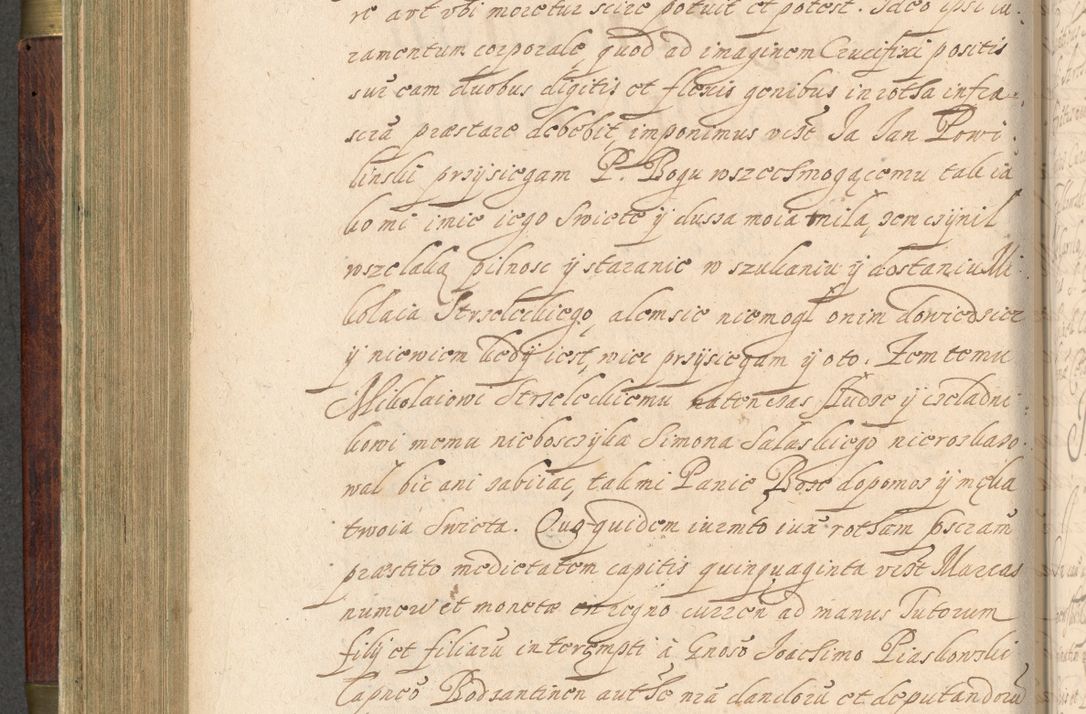 re aut ubi moretur scire potuit et potest. Ideo ipsi iu-
ramentum corporale, quod ad imaginem Crucifixi positis
sur eam duobus digitis et flexis genibus in rotha infra
scra præstare debebit, imponimus vidt Ja Jan Powi
linski przysiegam P. Bogu wszechmogącemu tak ia
ko mi imie iego Swiete y dussa moia mila, zem czynil
wszelaką pilnosc y staranie w szukaniu y dostaniu Mi
kolaia Strzeleckiego, alemsie niemogl onim dowiedziec
y niewiem kedy iest, wiec przysiegam y oto. Zem temu
Mikolaiowi Strzeleckiemu natenczas słudze y czeladni
kowi memu nieboszczyka Simona Saluskiego nierozkazo
wal bic ani zabiiac, tak mi Panie Boze dopomoz y męka
twoia Swieta. Quo quidem iurmto iux rotham pscram
præstito medietatem capitis quinquaginta vidt Marcas
numeri et monetæ in regno curren ad manus Tutorum
filij et filiarū interempti à Gnoso Joachimo Piaskowski
Capneo Bodzantinen aut Se nra dandorū et deputandorū